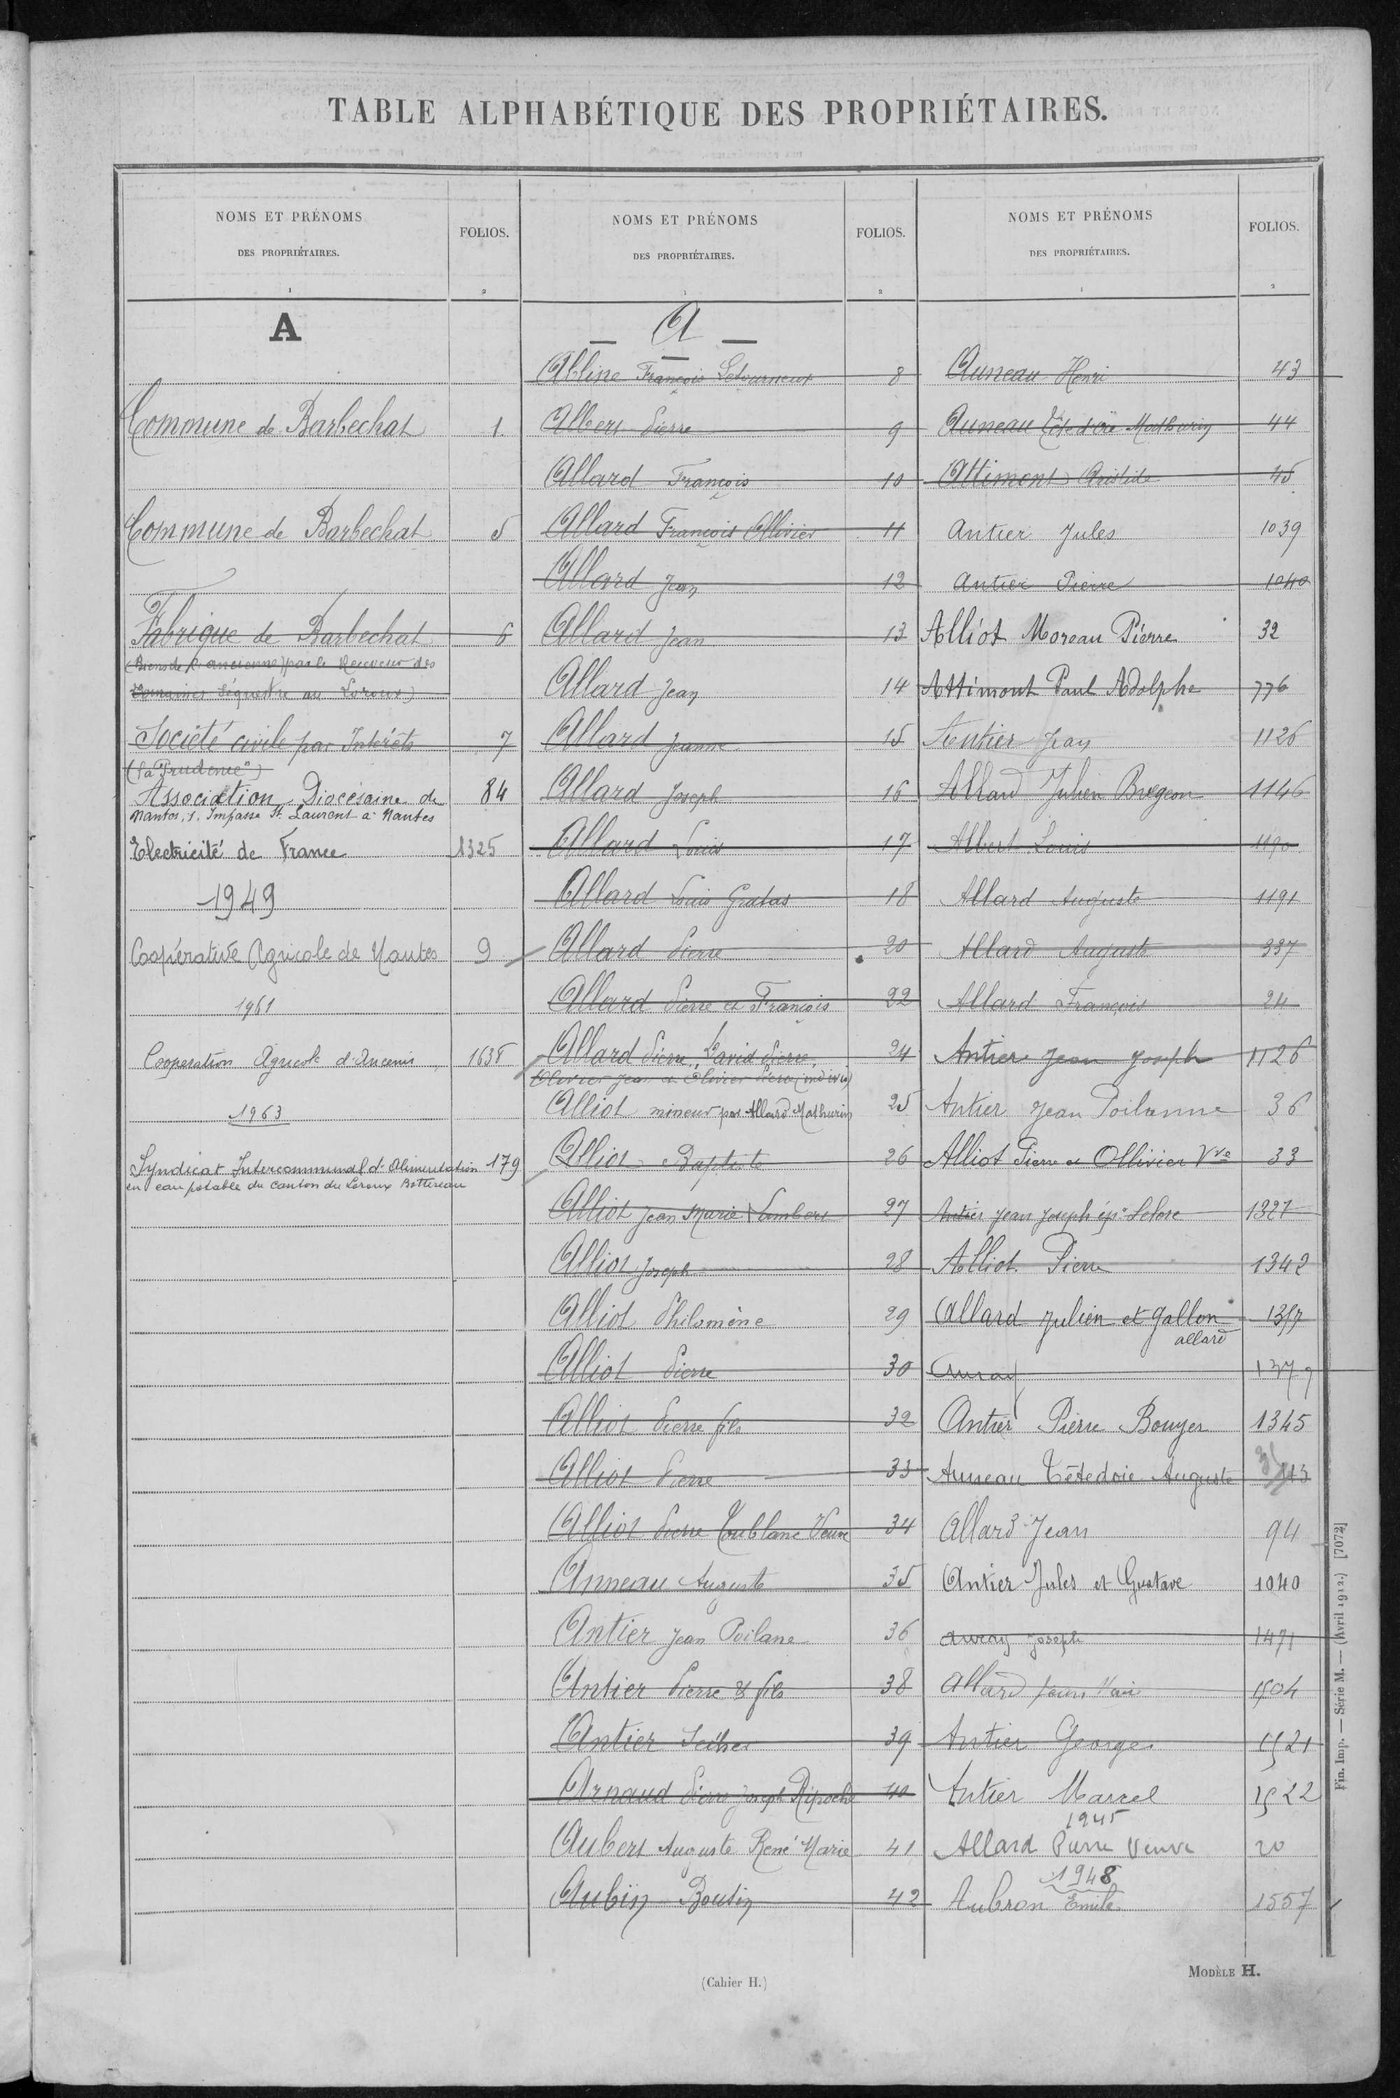 TABLE ALPHABÉTIQUE DES PROPRIÉTAIRES.
NOMS ET PRÉNOMS
DES PROPRIÉTAIRES.
1
FOLIOS.
2
A
Commune de Barbechat 1.
Commune de Barbechat 5
Fabrique de Barbechat 6
(Biens de l'ancienne) par le Receveur des
Domaines Séquestre au Loroux)
Société civile par Intérêts 7
(La Prudence")
Association Diocésaine de 84
Nantes, 1, Impasse St Laurent à Nantes
Electricité de France 1325
1949
Coopérative Agricole de Nantes 9
1961
Cooperation Agricole d'Ancenis 1638
1963
Syndicat Intercommunal d'Alimentation 179
en eau potable du canton du Loroux Bottereau
NOMS ET PRÉNOMS
DES PROPRIÉTAIRES.
1
FOLIOS.
2
A
Abline François Letourneux 8
Albert Pierre 9
Allard François 10
Allard François Ollivier 11
Allard Jean 12
Allard Jean 13
Allard Jean 14
Allard Jeanne 15
Allard Joseph 16
Allard Louis 17
Allard Louis Gratas 18
Allard Pierre 20
Allard Pierre et François 22
Allard Pierre, David Pierre 24
Olivier Jean et Olivier Pierre (indivis)
Alliot mineur par Allard Mathurin 25
Alliot Baptiste 26
Alliot Jean Marie Lambert 27
Alliot Joseph 28
Alliot Philomène 29
Alliot Pierre 30
Alliot Pierre fils 32
Alliot Pierre 33
Alliot Pierre Toublanc Veuve 34
Anneau Auguste 35
Antier Jean Poilane 36
Antier Pierre & fils 38
Antier 39
Arnaud Pierre Joseph Ripoche 40
Aubert Auguste René Marie 41
Aubin Boutin 42
NOMS ET PRÉNOMS
DES PROPRIÉTAIRES.
1
FOLIOS.
2
Auneau Henri 43
Auneau Tête d'Oie Mathurin 44
Attimont Aristide 45
Antier Jules 1039
Antier Pierre 1040
Alliot Moreau Pierre 32
Attimont Paul Adolphe 776
Antier Jean 1126
Allard Julien Bregeon 1146
Albert Louis 1190
Allard Auguste 1191
Allard Auguste 337
Allard François 24
Antier Jean Joseph 1126
Antier Jean Poilanne 36
Alliot Pierre et Ollivier Vve 33
Antier Jean Joseph ép. Lelore 1327
Alliot Pierre 1342
Allard Julien et Gallon 1357
allard
Auray 1377
Antier Pierre Bouyer 1345
Auneau Têtedoie Auguste
Allard Jean 94
Antier Jules et Gustave 1040
Auray Joseph 1471
Allard Jean 1504
Antier Georges 1521
Antier Marcel 1522
1945
Allard Pierre Veuve 20
1948
Aubron Emile 1557
Fin. Imp. — Série M. — (Avril 1912.) [7072]
(Cahier H.)
MODÈLE H.